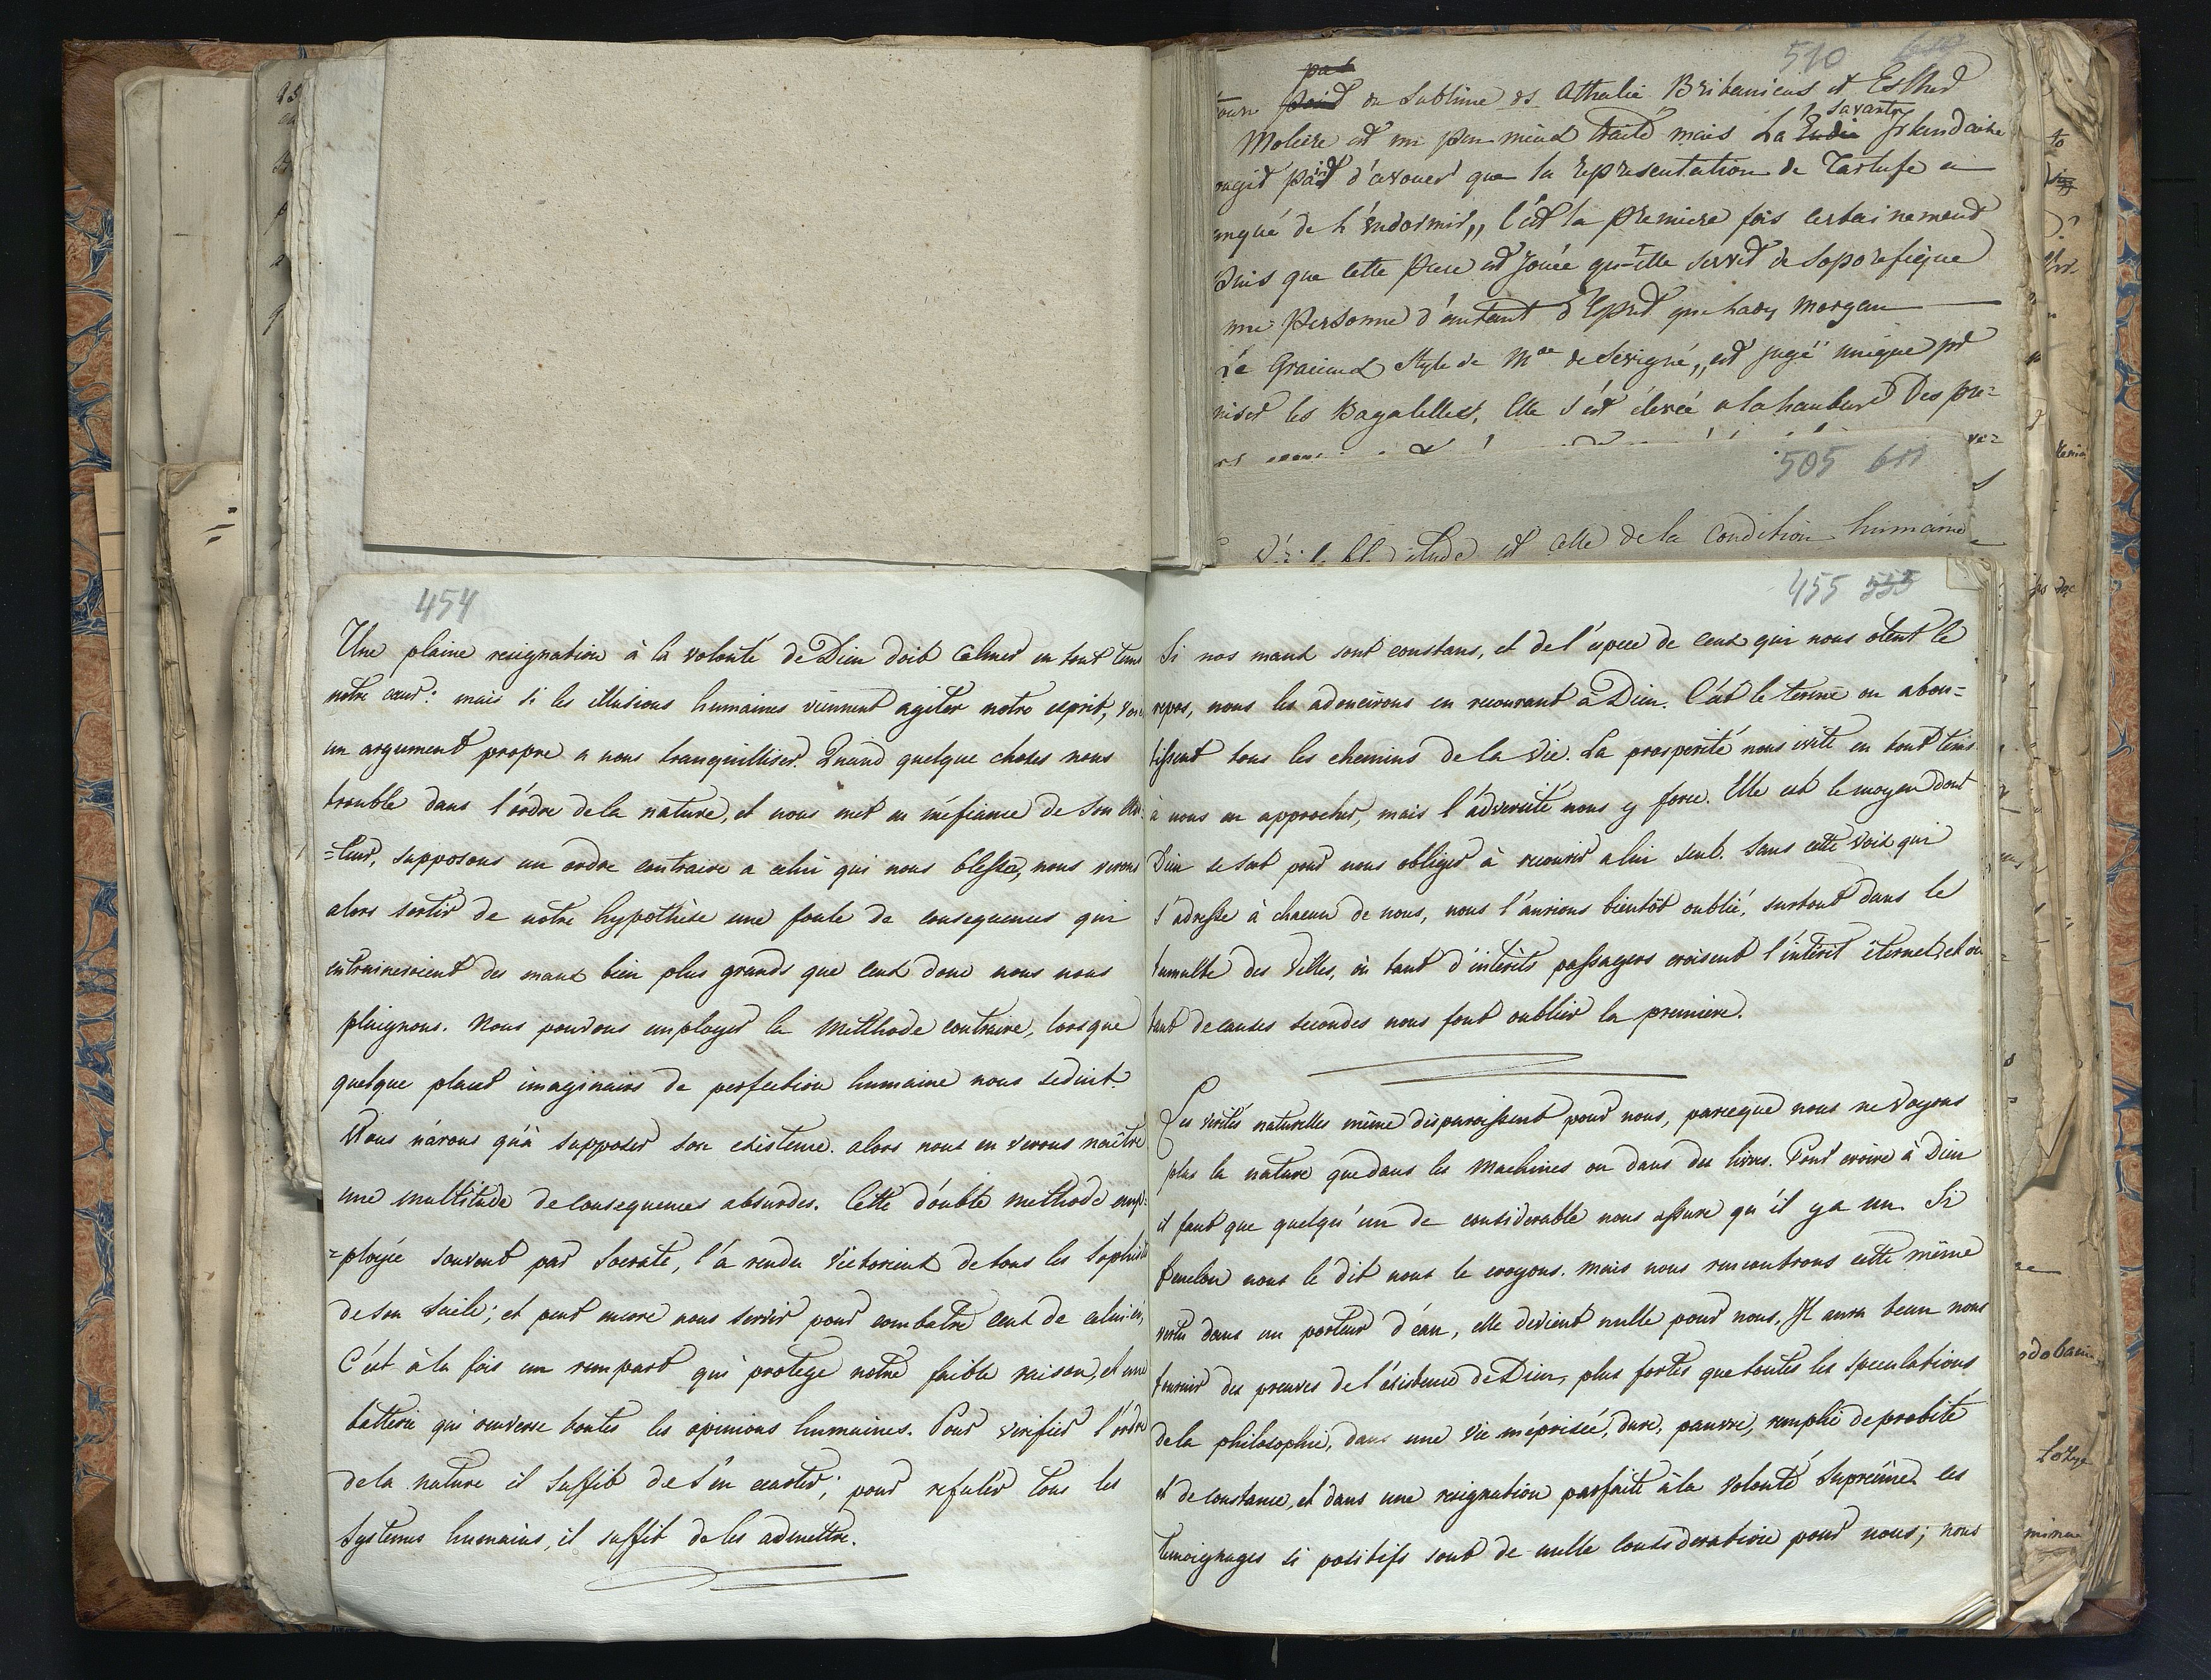 510 610
pas
point du sublime ds Athalie Britanicus et Esther
savante
Moliere est un peu mieux traité mais La Irlandaise
rougit point d'avouer que la representation de Tartufe a
manqué de l'endormir,, C'est la premiere fois certainement
que cette piece est jouée qu'elle servit de soporifique
une personne d'autant d'Esprit que Lady Morgan
Le Gracieux style de Mme de Sevigné,, est jugé unique pr
les Bagatelles, Elle s'est élevée a la hauteur Des pre=
505 611
est celle de la condition humaine
454
Une plaine resignation à la volonté de Dieu doit calmer en tout tems
notre coeur: mais si les illusions humaines viennent agiter notre esprit, voici
un argument propre a nous tranquilliser. Quand quelque choses nous
trouble dans l'ordre de la nature, et nous met en méfiance de son Au-
=teur, supposons un ordre contraire a celui qui nous blesse, nous verons
alors sortir de notre hypothèse une foule de consequences qui
entraineroient des maux bien plus grands que ceux donc nous nous
plaignons. Nous pouvons employer la methode contraire, lorsque
quelque plant imaginaire de perfection humaine nous seduit.
Nous n'avons qu'à supposer son existence. alors nous en verons naître
une multitude de consequences absurdes. Cette double methode emp-
=ployée souvent par Socrate, l'a rendu victorieux de tous les sophistes
de son siecle; et peut encore nous servir pour combatre ceux de celui-ci,
C'est à la fois un rempart qui protege notre faible raison, et une
batterie qui renverse toutes les opinions humaines. Pour verifier l'ordre
de la nature il suffit de s'en ecarter; pour refuter tous les
systemes humains, il suffit de les admettre.
455 555
Si nos maux sont constans, et de l'espece de ceux qui nous ôtent le
repos, nous les adoucirons en recourant à Dieu. C'est le terme ou abou=
tissent tous les chemins de la vie. La prosperité nous invite en tout tems
à nous en approcher, mais l'adversité nous y force. Elle est le moyen dont
Dieu se sert pour nous obliger à recourir a lui seul. Sans cette voix qui
s'adresse à chacun de nous, nous l'aurions bientôt oublié, surtout dans le
tumulte des Villes, où tant d'intérêts passagers croisent l'intérêt éternel, et où
tant de causes secondes nous font oublier la premiere.
Les verités naturelles même disparoissent pour nous, parceque nous ne voyons
plus la nature que dans les machines ou dans des livres. Pour croire à Dieu
il faut que quelqu'un de considerable nous assure qu'il y a un. Si
fenelon nous le dit nous le croyons. mais nous rencontrons cette même
vertu dans un porteur d'eau, elle devient nulle pour nous. Il aura beau nous
fournir des preuves de l'existence de Dieu, plus fortes que toutes les speculations
de la philosophie, dans une vie méprisée, dure, pauvre, remplie de probité
et de constance, et dans une resignation parfaite à la volonté supreme. ces
temoignages si positifs sont de nulle consideration pour nous; nous